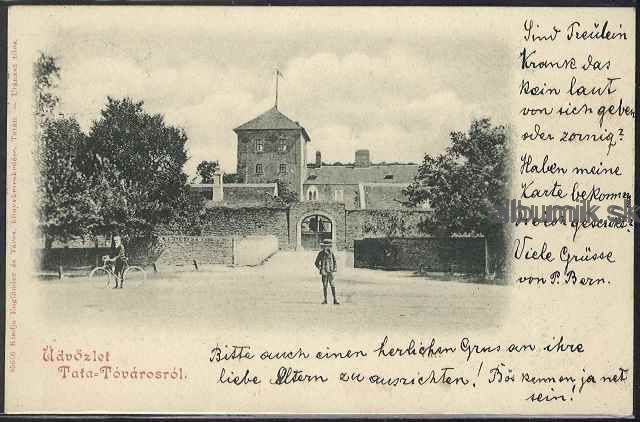 Sind Freülein
Krank das
kein laut
von sich geben
oder zornig?
Haben meine
Karte bekommen
Viele Grüsse
von P. Bern.
albumik.sk
Üdvözlet
Tata-Tóvárosról.
Bitte auch einen herlichen Grus an ihre
liebe Altern zu ausrichten! Bös kennen ja net
sein!